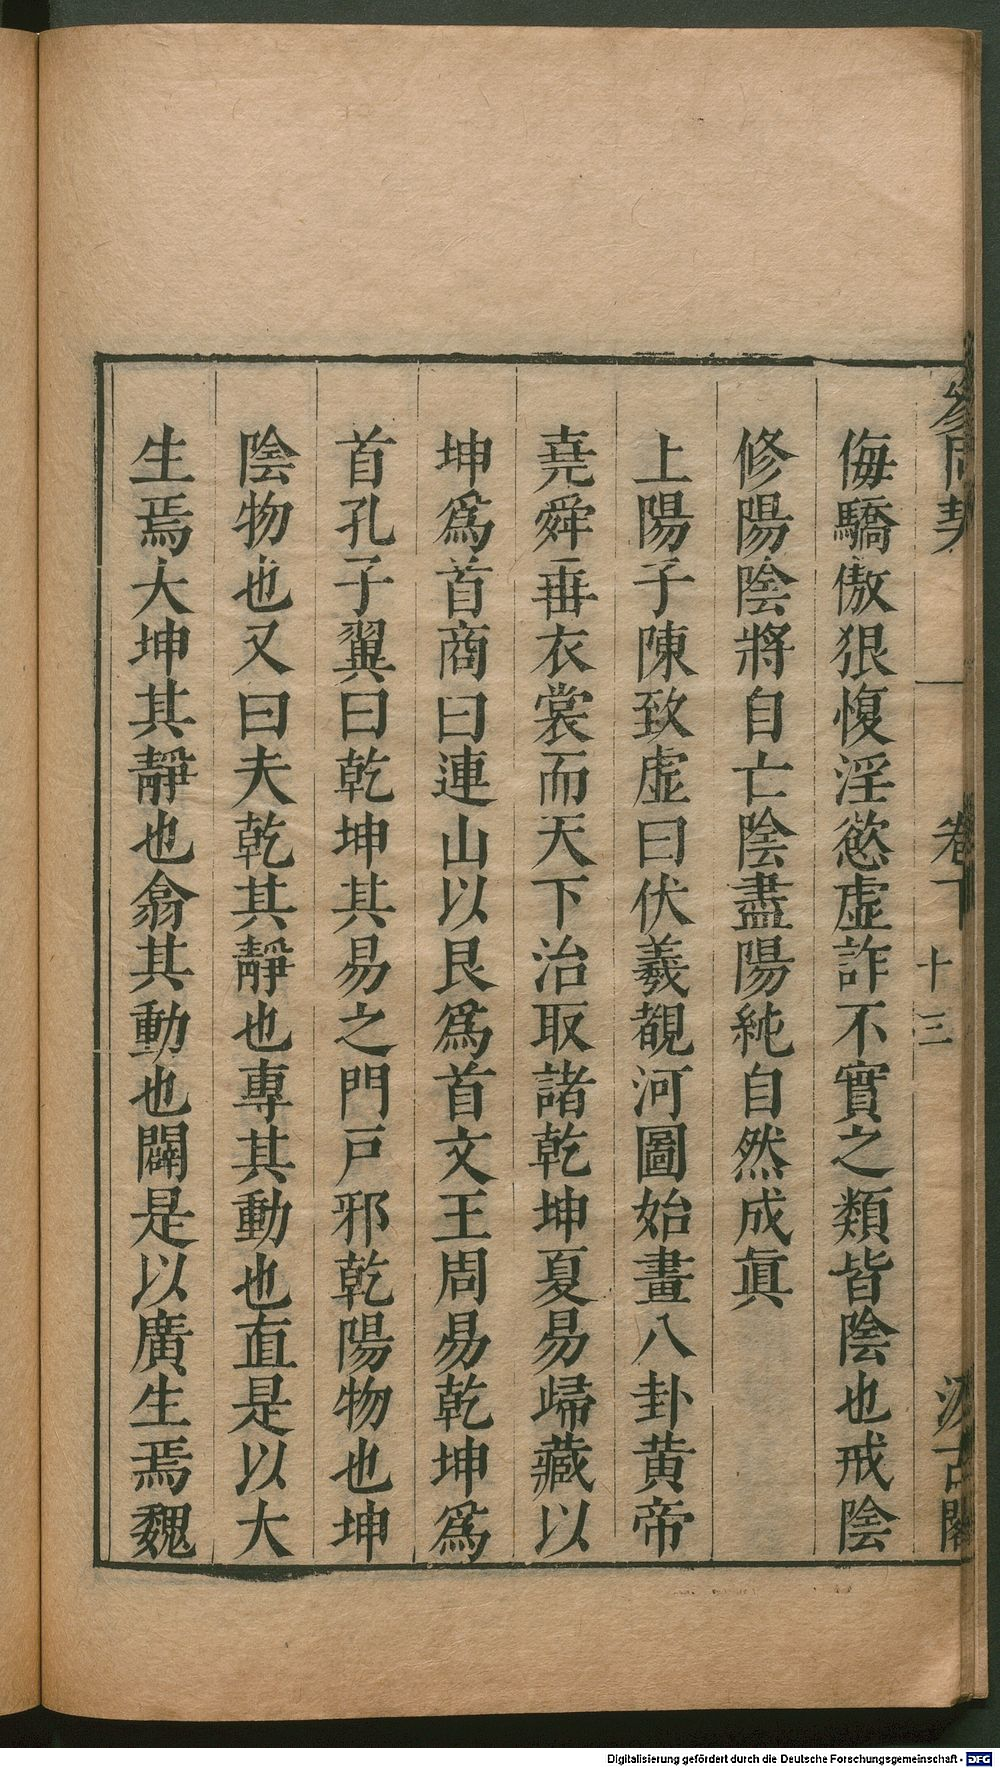 參同契 卷下 十三 汲古閣
侮驕傲狠愎淫慾虛詐不實之類皆陰也戒陰
修陽陰將自亡陰盡陽純自然成眞
上陽子陳致虛曰伏羲覩河圖始畫八卦黃帝
堯舜垂衣裳而天下治取諸乾坤夏易歸藏以
坤爲首商曰連山以艮爲首文王周易乾坤爲
首孔子翼曰乾坤其易之門戸邪乾陽物也坤
陰物也又曰夫乾其靜也專其動也直是以大
生焉大坤其靜也翕其動也闢是以廣生焉魏
Digitalisierung gefördert durch die Deutsche Forschungsgemeinschaft - DFG